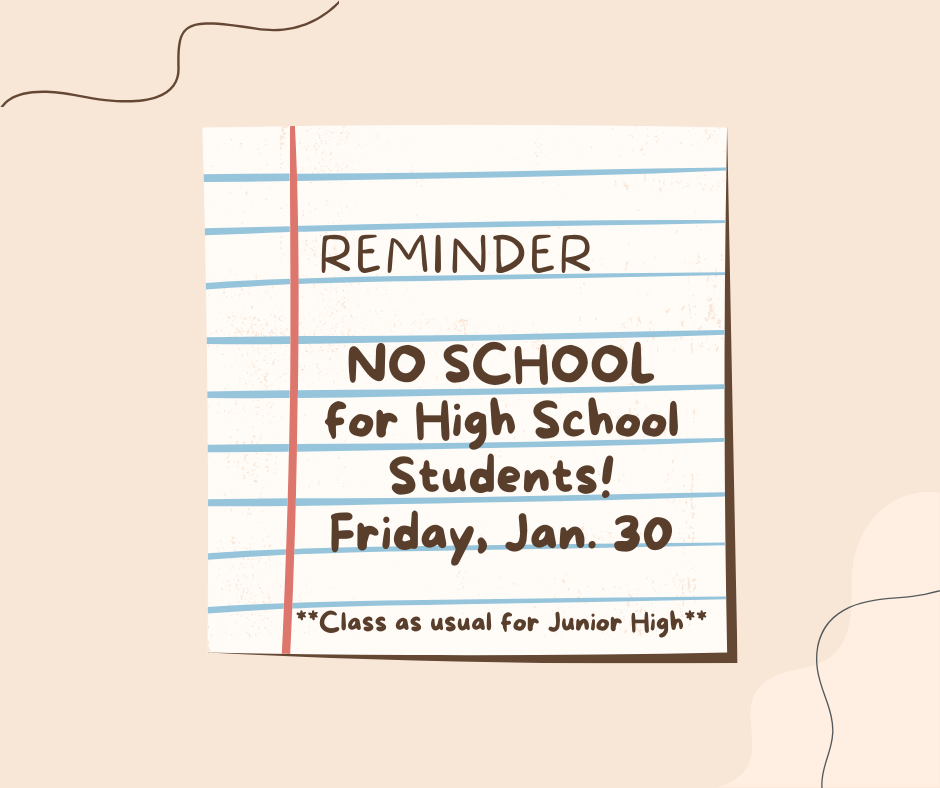 REMINDER
NO SCHOOL
for High School
Students!
Friday, Jan. 30
**Class as usual for Junior High**